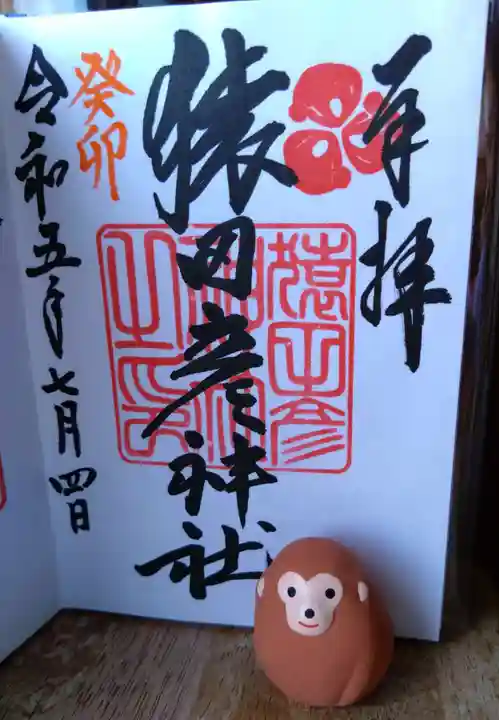 奉拝
猿田彦神社
猿田彦神社之印
癸卯
令和五年七月四日